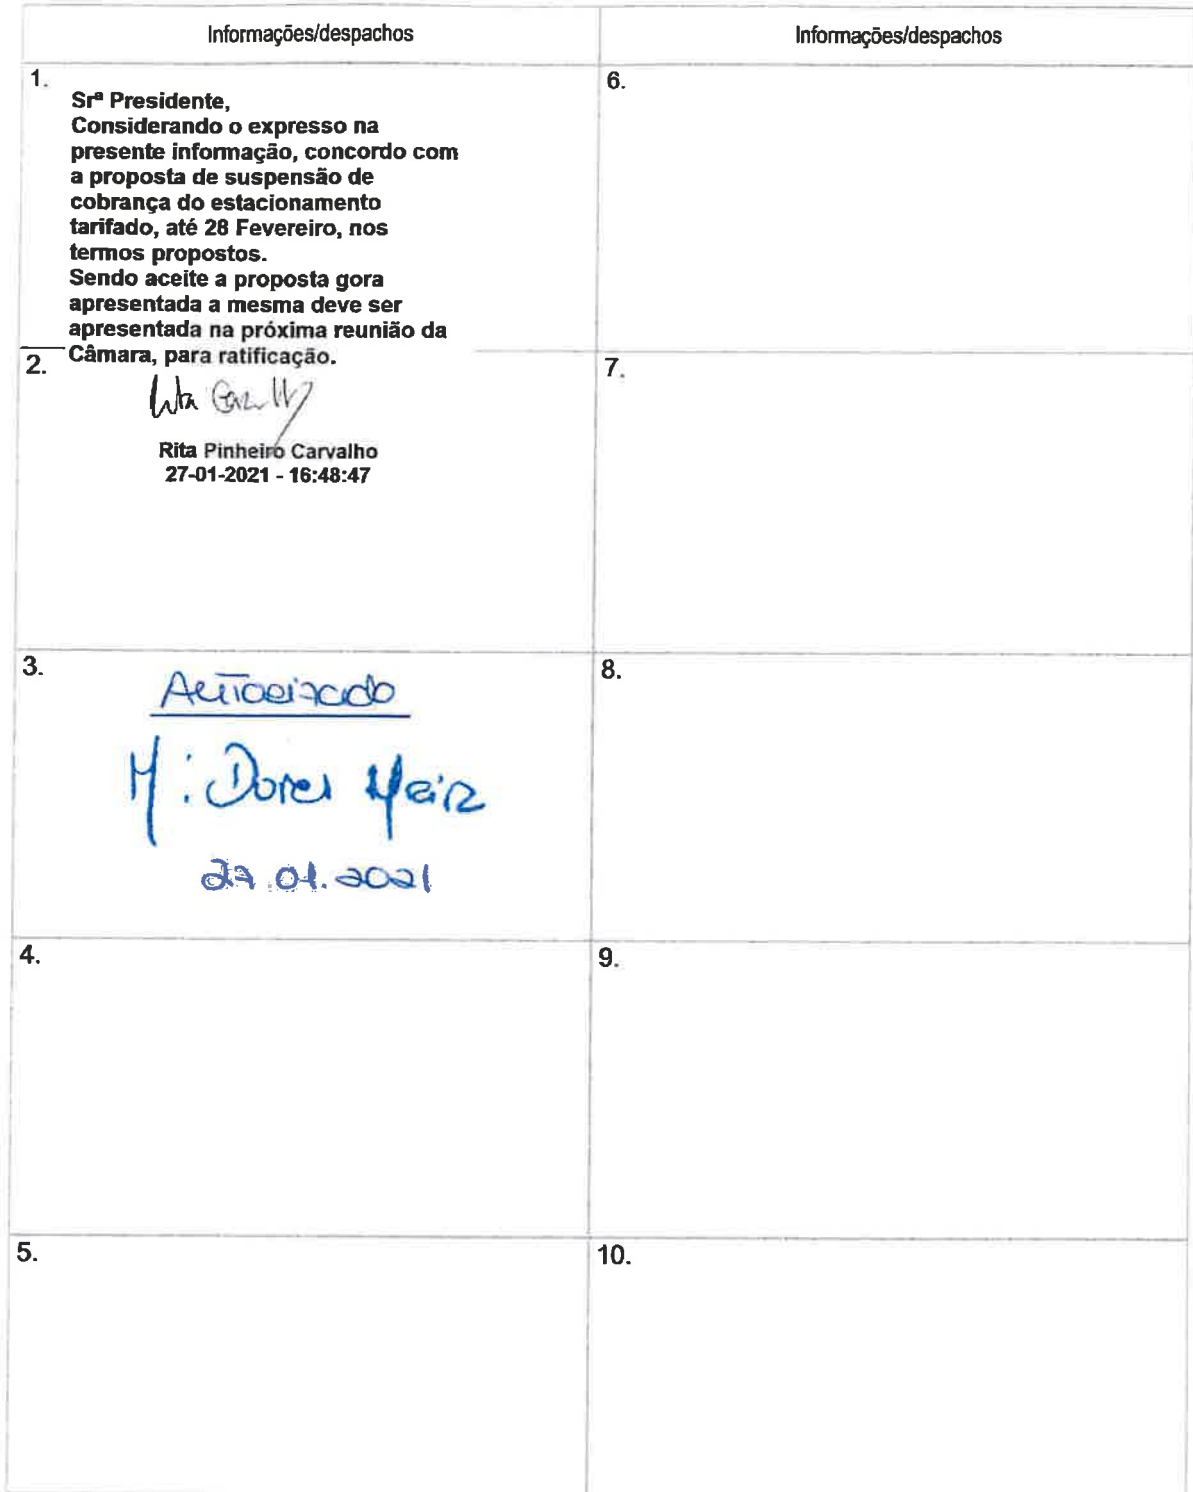 Informações/despachos
Informações/despachos
1.
Srª Presidente,
Considerando o expresso na
presente informação, concordo com
a proposta de suspensão de
cobrança do estacionamento
tarifado, até 28 Fevereiro, nos
termos propostos.
Sendo aceite a proposta gora
apresentada a mesma deve ser
apresentada na próxima reunião da
Câmara, para ratificação.
2.
Rita Pinheiro Carvalho
27-01-2021 - 16:48:47
3.
Autorizado
Mª Dores Meira
27.01.2021
4.
5.
6.
7.
8.
9.
10.